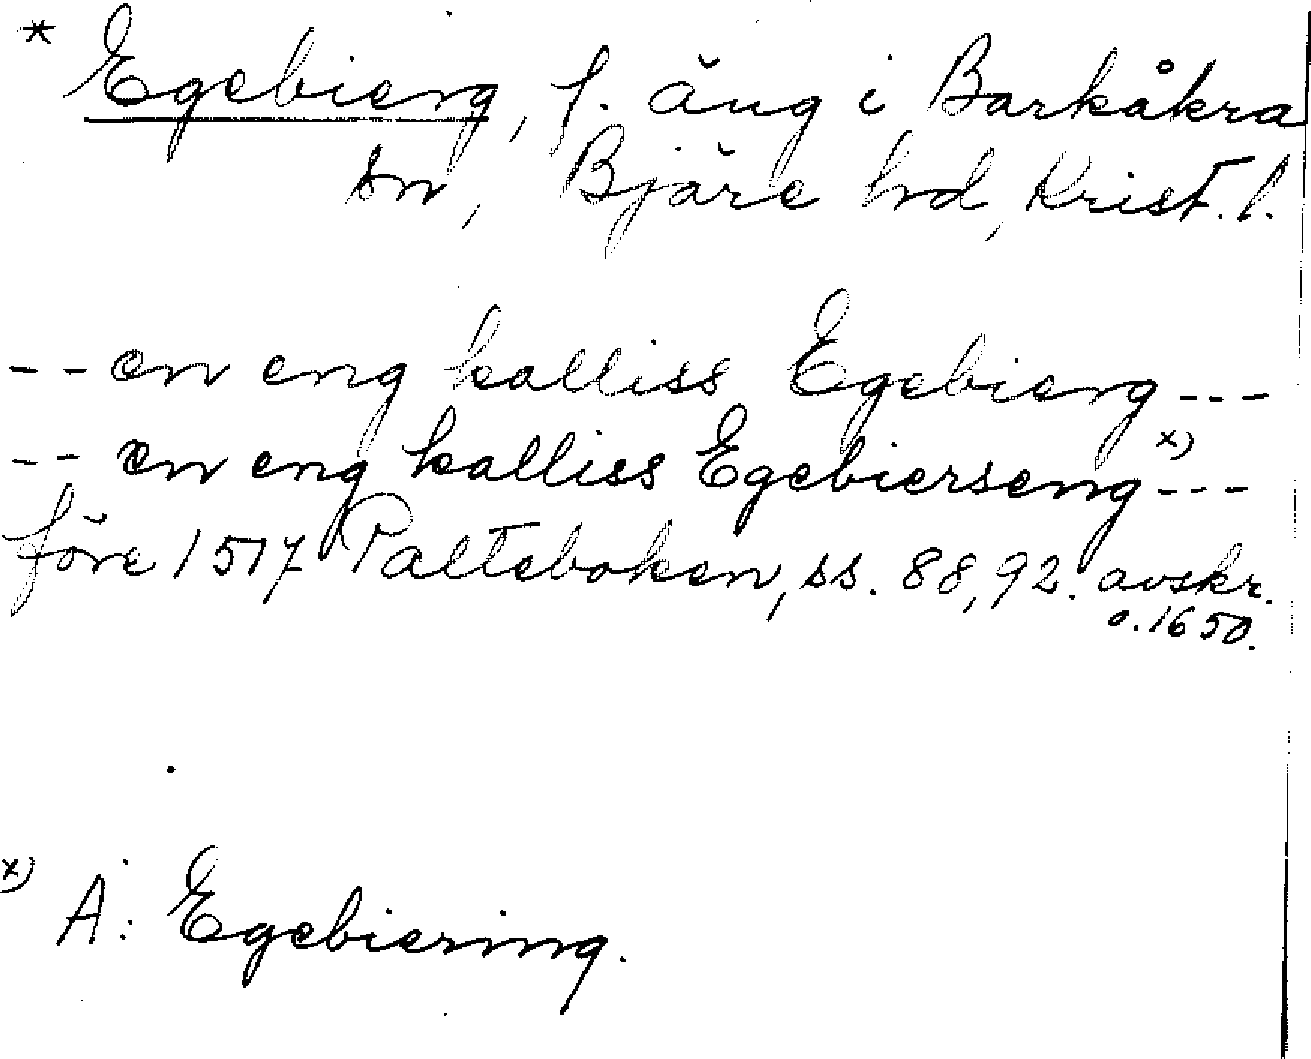 * Egebierg, f. äng i Barkåkra
sn, Bjäre hd, Krist. l.
-- en eng kalliss Egebierg ---
-- en eng kalliss Egebierseng x) ---
före 1517 Palteboken, ss. 88, 92. avskr.
o. 1650.
x) A: Egebiering.